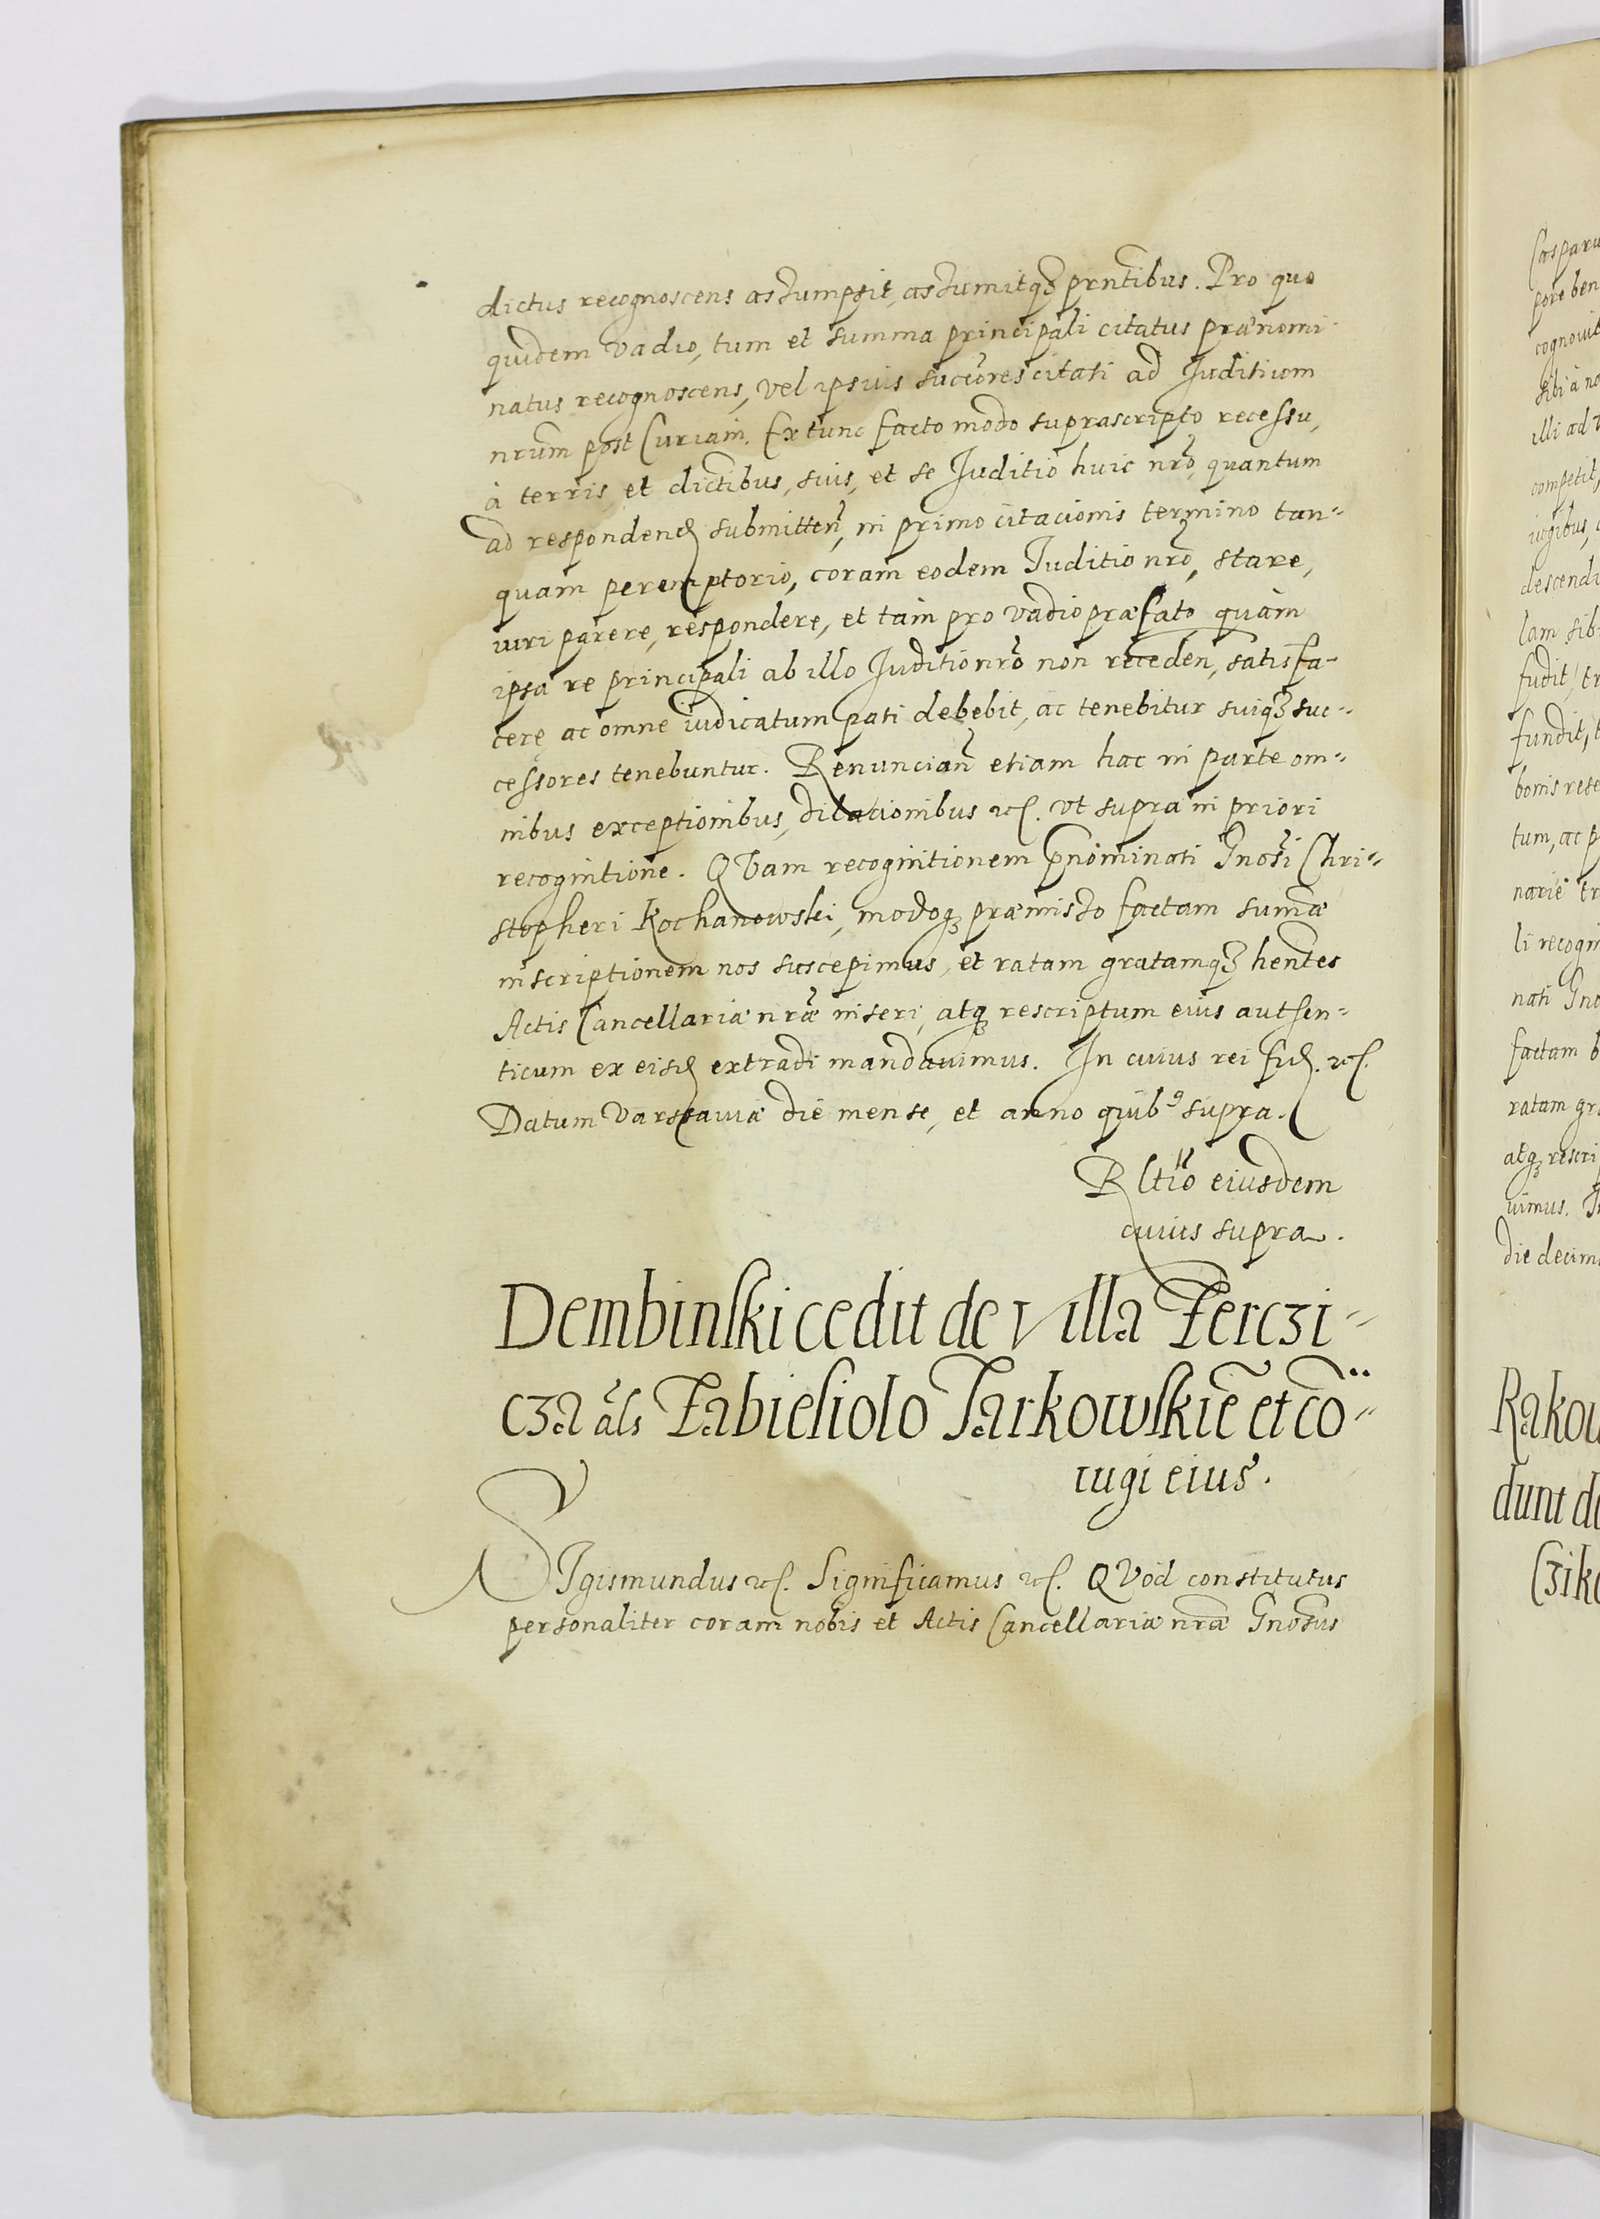 dictus recognoscens assumpsit, assumitqȝ prntibus. Pro quo
quidem vadio, tum et summa principali citatus prænomi-
natus recognoscens, vel ipsius succores citati ad Juditium
nrum post Curiam. Ex tunc facto modo suprascripto recessu,
à terris et dictibus, suis, et se Juditio huic nro, quantum
ad respondend submitten, in primo citacionis termino tan-
quam peremptorio, coram eodem Juditio nro, stare,
iuri parere, respondere, et tam pro vadio præfato quàm
ipsa re principali ab illo Juditio nro non receden, satisfa-
cere ac omne iudicatum pati debebit, ac tenebitur suiqȝ suc-
cessores tenebuntur. Renuncian etiam hac in parte om-
nibus exceptionibus, dilationibus etc. vt supra in priori
recognitione. QVam recognitionem pnominati Gnosi Chri-
stopheri Kochanowski, modoqȝ præmisso factam sumæ
inscriptionem nos suscepimus, et ratam gratamqȝ hentes
Actis Cancellariæ nræ inseri, atqȝ rescriptum eius authen-
ticum ex eisd extradi mandauimus. In cuius rei fid. etc.
Datum Varssauiæ die mense, et anno quib9 supra.
Rltio eiusdem
cuius supra.
Dembinski cedit de villa Zerczi-
cza als Zabieliolo Jarkowskie et co-
iugi eius.
SIgismundus etc. Significamus etc. QVod constitutus
personaliter coram nobis et Actis Cancellariæ nræ Gnosus
Casparu
pore ben
cognouit
sibi à no
illi ad
competit,
iugibus,
descendi
lam sib
fudit, tr
fundit, t
bonis rese
tum, ac p
narie tr
li recogn
nati Gno
factam
ratam gra
atqȝ rescri
uimus.
die decim
Rakow
dunt de
Cziko